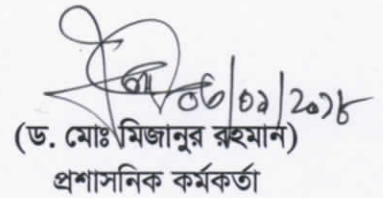 ০৮/০১/২০১৮
(ড. মোঃ মিজানুর রহমান)
প্রশাসনিক কর্মকর্তা